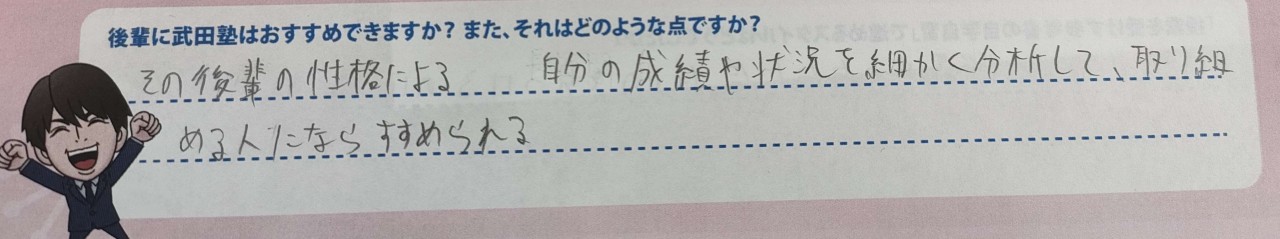 後輩に武田塾はおすすめできますか？また、それはどのような点ですか？
その後輩の性格による　自分の成績や状況を細かく分析して、取り組
める人になら すすめられる